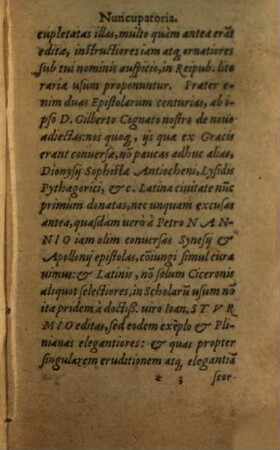 Nuncupatoria.
cupletatas illas, multo quàm antea erāt
editæ, instructiores iam atq; ornatiores
sub tui nominis auspicio, in Reipub. lite
rariæ usum proponuntur. Præter e-
nim duas Epistolarum centurias, ab i-
pso D. Gilberto Cognato nostro de nouo
adiectas: nos quoq;, ijs quæ ex Græcis
erant conuersæ, nō paucas adhuc alias,
Dionysij Sophistæ Antiocheni, Lysidis
Pythagorici, & c. Latina ciuitate nūc
primum donatas, nec unquam excusas
antea, quasdam uerò à Petro NAN-
NIO iam olim conuersas Synesij &
Apollonij epistolas, cōiungi simul cura
uimus: & Latinis, nō solum Ciceronis
aliquot selectiores, in Scholarū usum nō
ita pridem à doctiss. uiro Ioan. STVR
MIO editas, sed eodem exēplo & Pli-
nianas elegantiores: & quas propter
singularem eruditionem atq; elegantiā
* 3 seor-